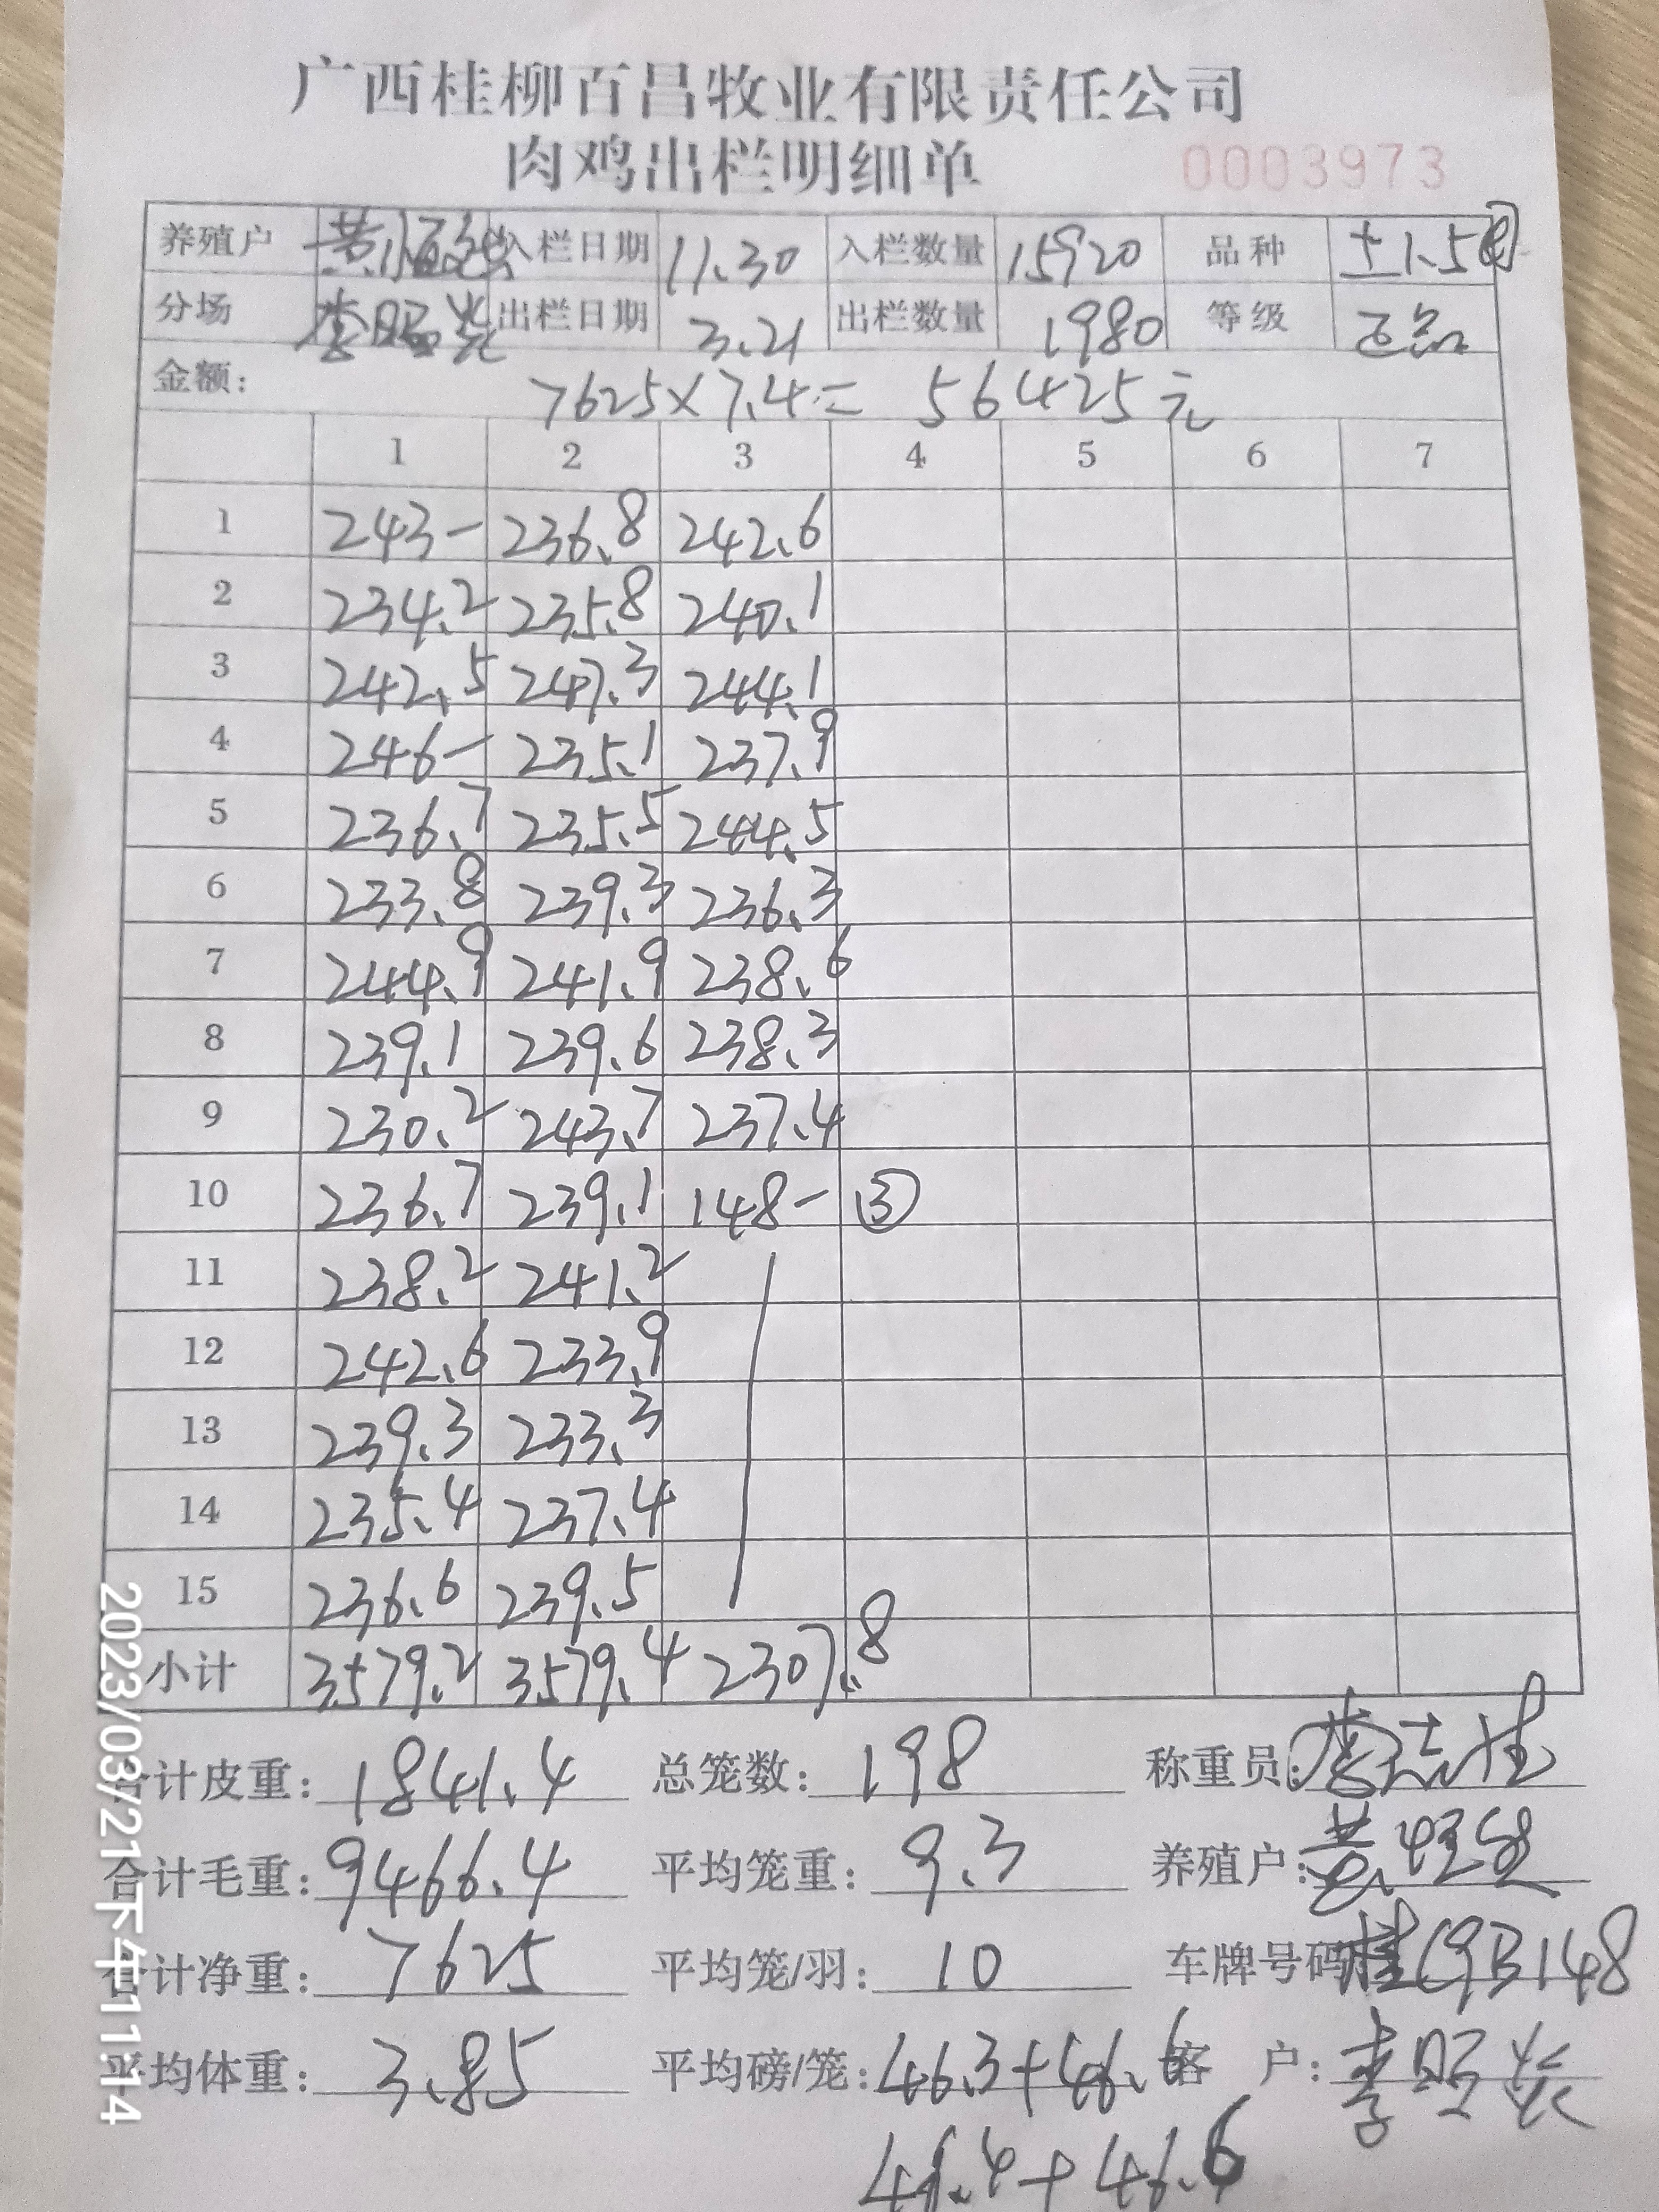 广西桂柳百昌牧业有限责任公司
肉鸡出栏明细单 0003973
养殖户 入栏日期 11.30 入栏数量 15920 品种 土1.5
分场 李昭 出栏日期 3.21 出栏数量 1980 等级 正品
金额: 7625×7.4= 56425元
1 2 3 4 5 6 7
1 243- 236.8 242.6
2 234.2 235.8 240.1
3 242.5 247.3 244.1
4 246- 235.1 237.9
5 236.7 235.5 244.5
6 233.8 239.3 236.3
7 244.9 241.9 238.6
8 239.1 239.6 238.3
9 230.2 243.7 237.4
10 236.7 239.1 148- ③
11 238.2 241.2
12 242.6 233.9
13 239.3 233.3
14 235.4 237.4
15 236.6 239.5
小计 3579.2 3579.4 2307.8
合计皮重: 1841.4 总笼数: 198 称重员: 李志
合计毛重: 9466.4 平均笼重: 9.3 养殖户:
合计净重: 7625 平均笼/羽: 10 车牌号码 桂C9B148
平均体重: 3.85 平均磅/笼: 46.3+46.6 客户: 李昭
46.4+46.6
2023/03/21下午11:14